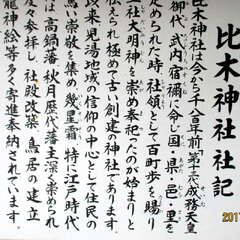 比木神社社記
比木神社は今から千八百年前「第十三代成務天皇
御代、武内宿禰に命じ国、県、邑、里を
定められた時、社領として百町歩を賜り
大明神を崇め奉祀ったのが始まりと
伝えられ極めて古い創建の神社であります。
以来児湯地域の信仰の中心として住民の
い崇敬を集め幾星霜、特に江戸時代
は高鍋藩秋月歴代藩主深く崇められ
度々参拝し、社殿改築、鳥居の建立
龍神絵等多く寄進奉納されています。
201